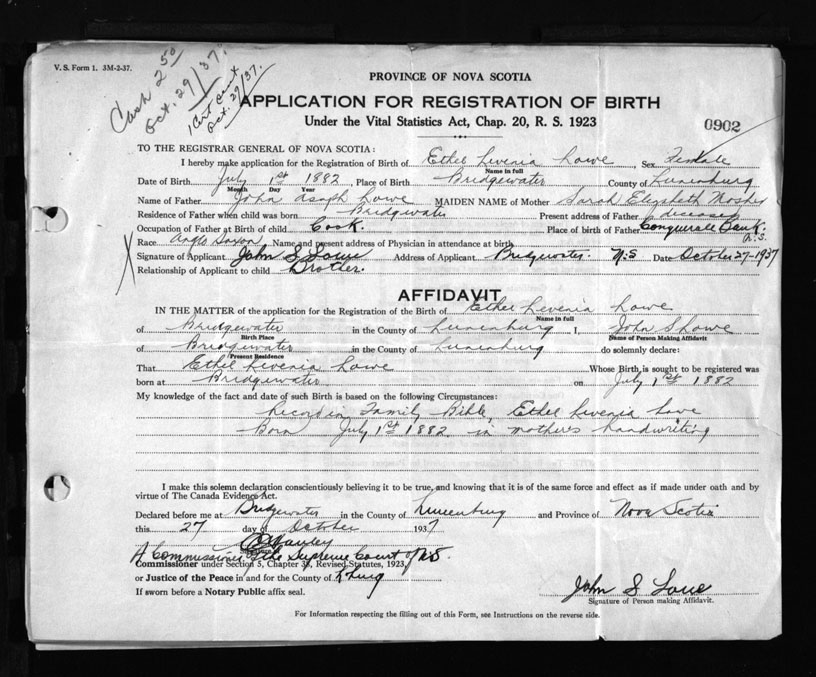 V. S. Form 1. 3M-2-37.
Cash 2 50
Oct. 29/37.
1 Cert
Oct 29/37.
PROVINCE OF NOVA SCOTIA
APPLICATION FOR REGISTRATION OF BIRTH
Under the Vital Statistics Act, Chap. 20, R. S. 1923
0902
TO THE REGISTRAR GENERAL OF NOVA SCOTIA:
I hereby make application for the Registration of Birth of Ethel Levenia Lowe, Sex Female
Name in full
Date of Birth July 1st 1882, Place of Birth Bridgewater County of Lunenburg
Month Day Year
Name of Father John Joseph Lowe MAIDEN NAME of Mother Sarah Elizabeth Mosher
Residence of Father when child was born Bridgewater Present address of Father diseased
Occupation of Father at Birth of child Cook. Place of birth of Father Conquerall Bank. N.S.
Race Anglo Saxon Name and present address of Physician in attendance at birth
Signature of Applicant John S Lowe Address of Applicant Bridgewater N.S Date October 27-1937
Relationship of Applicant to child Brother.
AFFIDAVIT
IN THE MATTER of the application for the Registration of the Birth of Ethel Levenia Lowe
Name in full
of Bridgewater in the County of Lunenburg I, John S Lowe
Birth Place Name of Person Making Affidavit
of Bridgewater in the County of Lunenburg do solemnly declare:
Present Residence
That Ethel Levenia Lowe Whose Birth is sought to be registered was
born at Bridgewater on July 1st 1882
My knowledge of the fact and date of such Birth is based on the following Circumstances:
Record in Family Bible, Ethel Levenia Lowe
Born July 1st 1882 in mothers handwriting
I make this solemn declaration conscientiously believing it to be true, and knowing that it is of the same force and effect as if made under oath and by
virtue of The Canada Evidence Act.
Declared before me at Bridgewater in the County of Lunenburg and Province of Nova Scotia
this 27 day of October 1937
A Commissioner of the Supreme Court of N.S.
Commissioner under Section 5, Chapter 38, Revised Statutes, 1923,
or Justice of the Peace in and for the County of
If sworn before a Notary Public affix seal.
John S Lowe
Signature of Person making Affidavit.
For Information respecting the filling out of this Form, see Instructions on the reverse side.